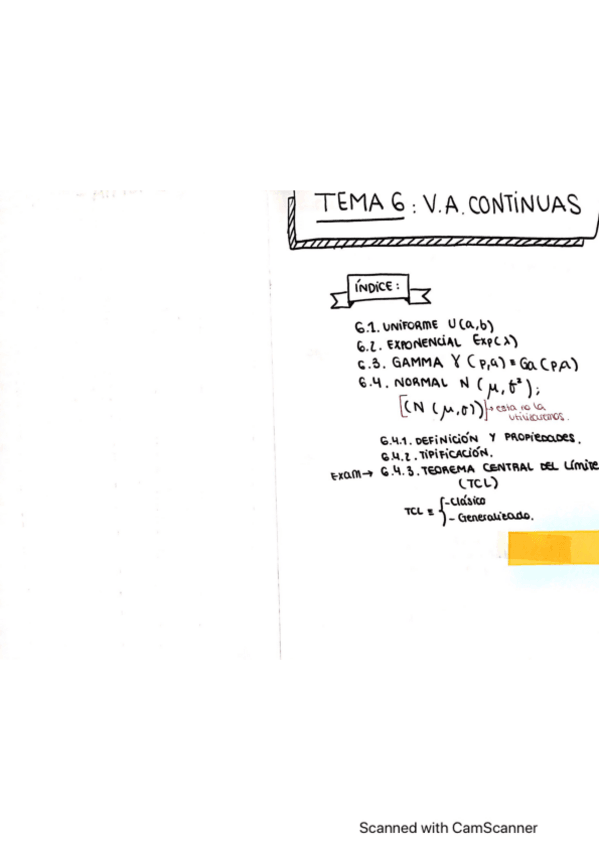 TEMA 6: V.A. CONTINUAS
ÍNDICE:
6.1. UNIFORME U(a,b)
6.2. EXPONENCIAL Exp(λ)
6.3. GAMMA γ(p,a) ≡ Ga(p,a)
6.4. NORMAL N(μ,σ²);
[(N(μ,σ))] → esta no la
utilizaremos.
6.4.1. DEFINICIÓN Y PROPIEDADES.
6.4.2. TIPIFICACIÓN.
Exam → 6.4.3. TEOREMA CENTRAL DEL Límite
(TCL)
TCL ≡ { - Clásico
- Generalizado.
Scanned with CamScanner